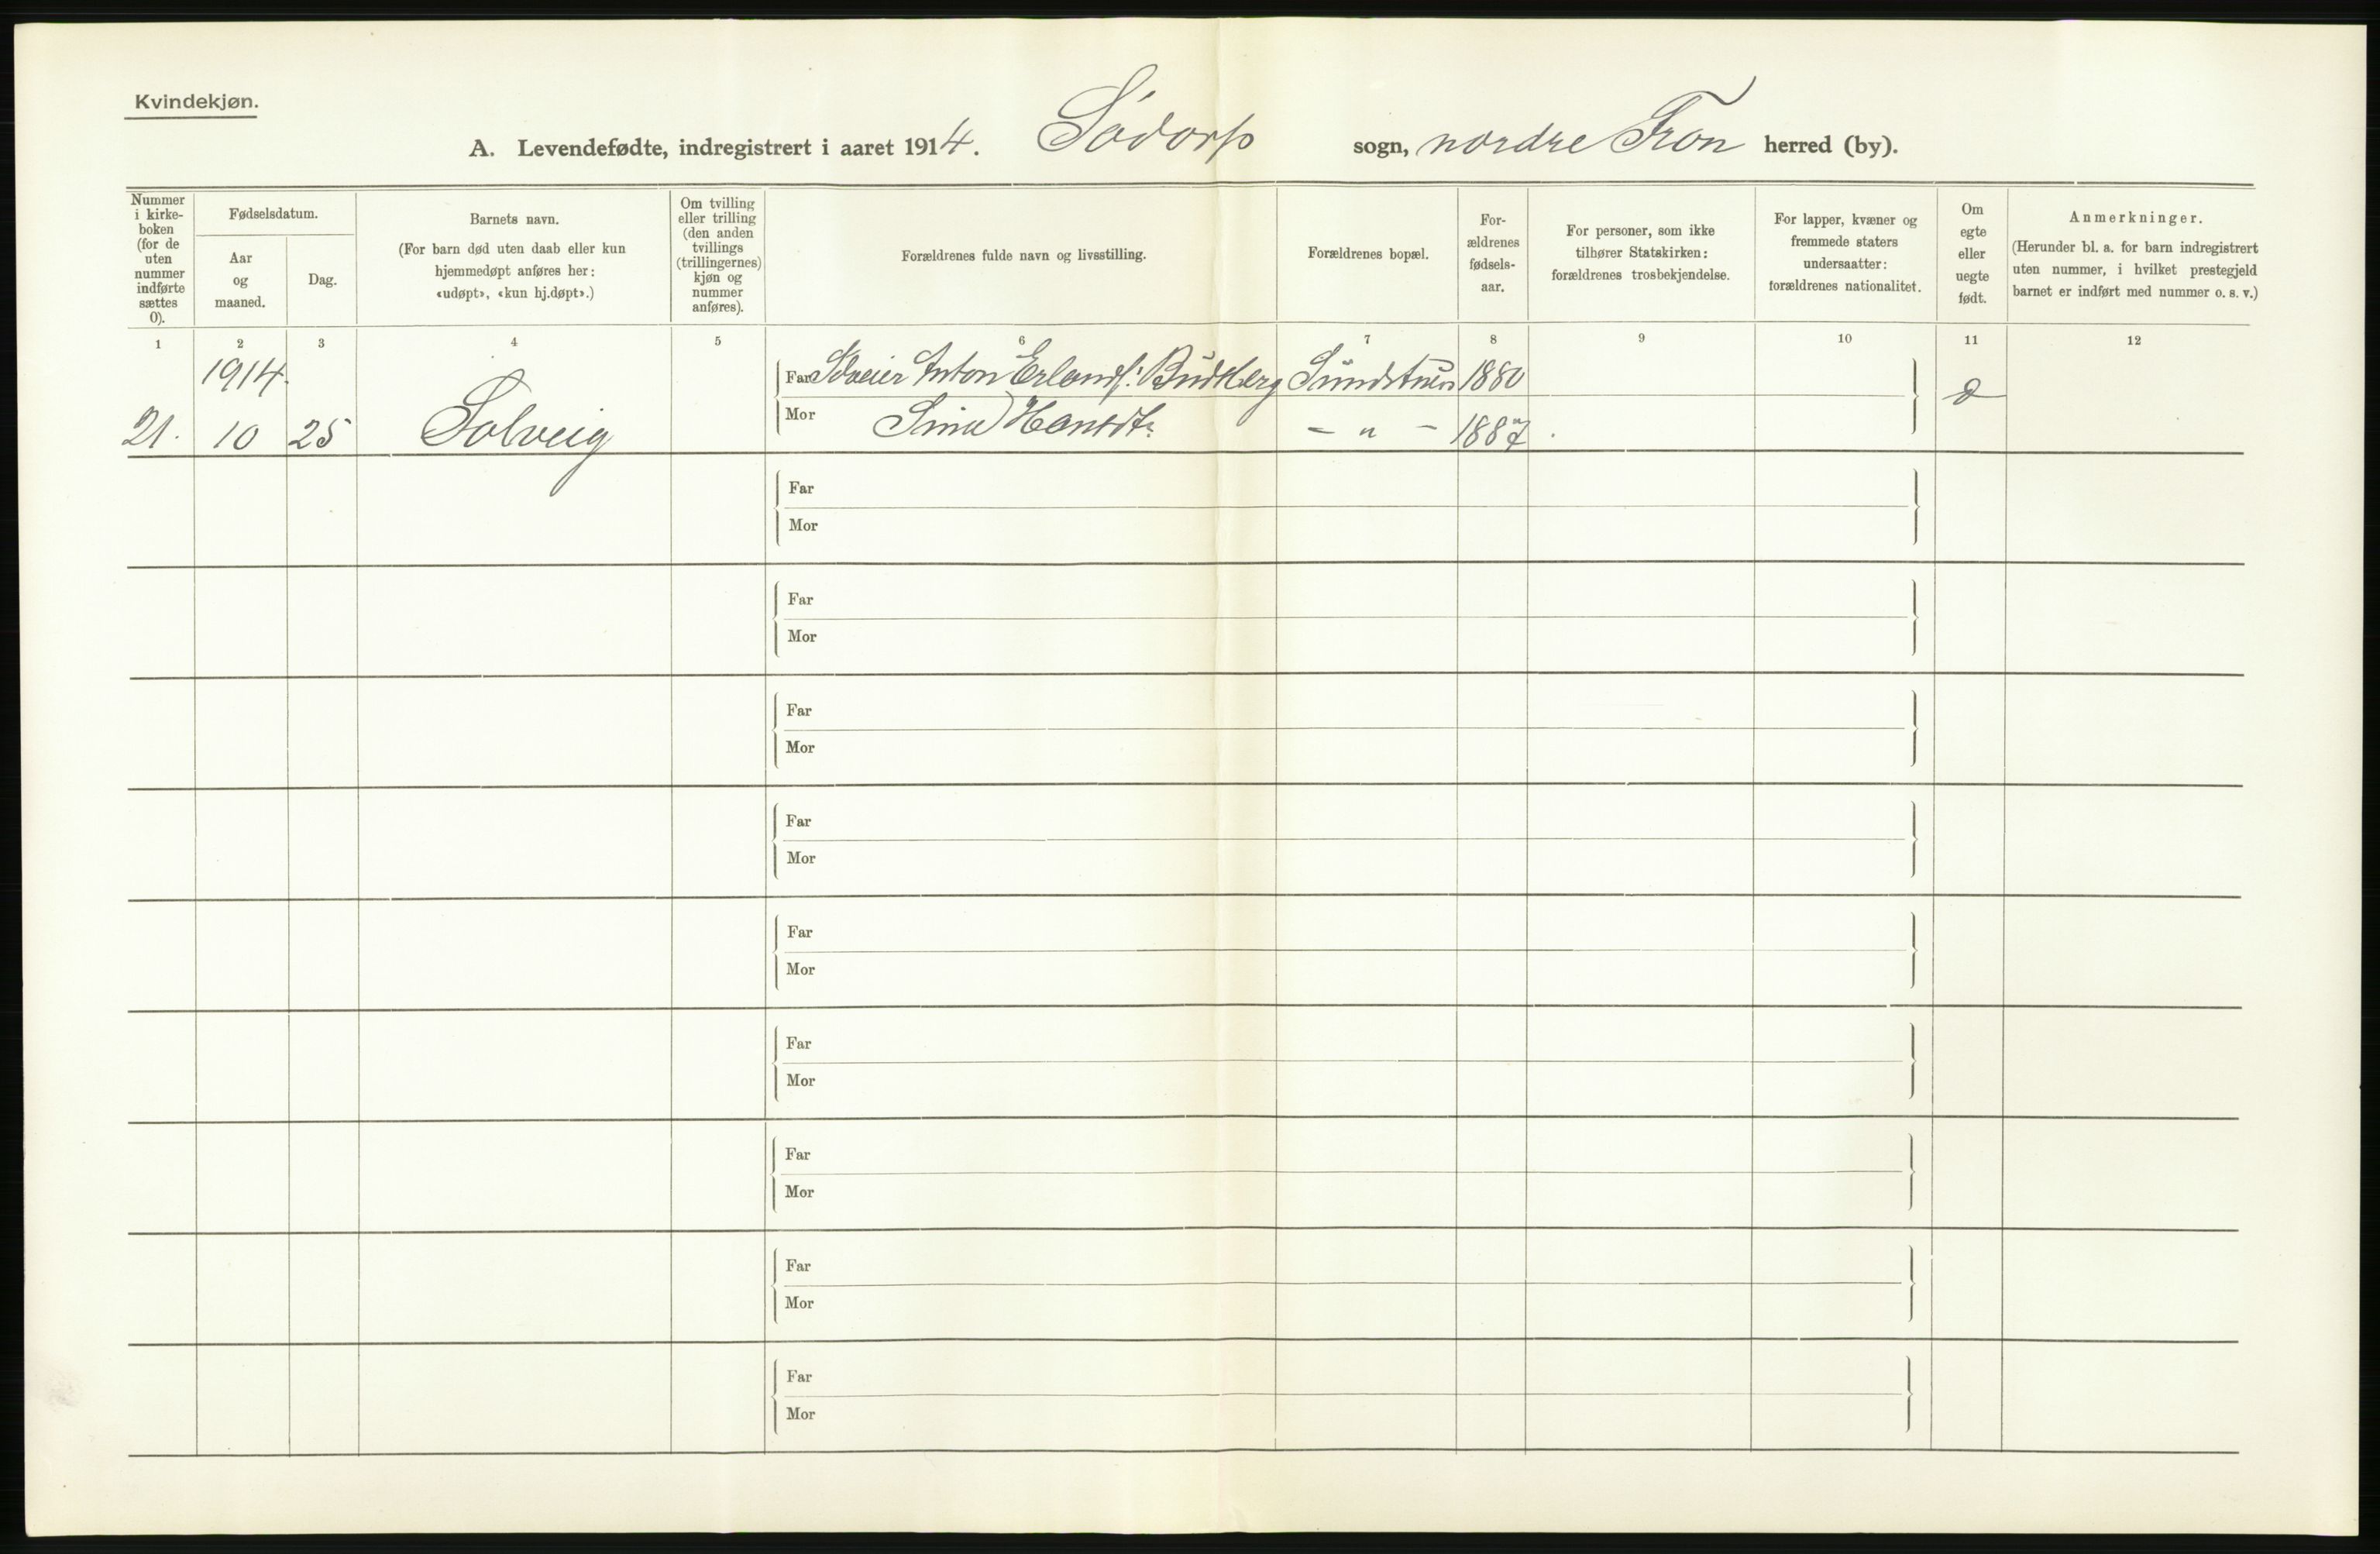 Kvindekjøn.
A. Levendefødte, indregistrert i aaret 1914. Sódorp sogn, nordre Fron herred (by).
Nummer i kirke-boken (for de uten nummer indførte sættes 0).
Fødselsdatum.
Aar og maaned.
Dag.
Barnets navn.
(For barn død uten daab eller kun hjemmedøpt anføres her: «udøpt», «kun hj.døpt».)
Om tvilling eller trilling (den anden tvillings (trillingernes) kjøn og nummer anføres).
Forældrenes fulde navn og livsstilling.
Forældrenes bopæl.
For-ældrenes fødsels-aar.
For personer, som ikke tilhører Statskirken: forældrenes trosbekjendelse.
For lapper, kvæner og fremmede staters undersaatter: forældrenes nationalitet.
Om egte eller uegte født.
Anmerkninger.
(Herunder bl. a. for barn indregistrert uten nummer, i hvilket prestegjeld barnet er indført med nummer o. s. v.)
1 2 3 4 5 6 7 8 9 10 11 12
1914. Far Anton Erlands. Budberg 1880
21. 10 25 Solveig Mor Hansdt. - " - 1887
Far
Mor
Far
Mor
Far
Mor
Far
Mor
Far
Mor
Far
Mor
Far
Mor
Far
Mor
Far
Mor